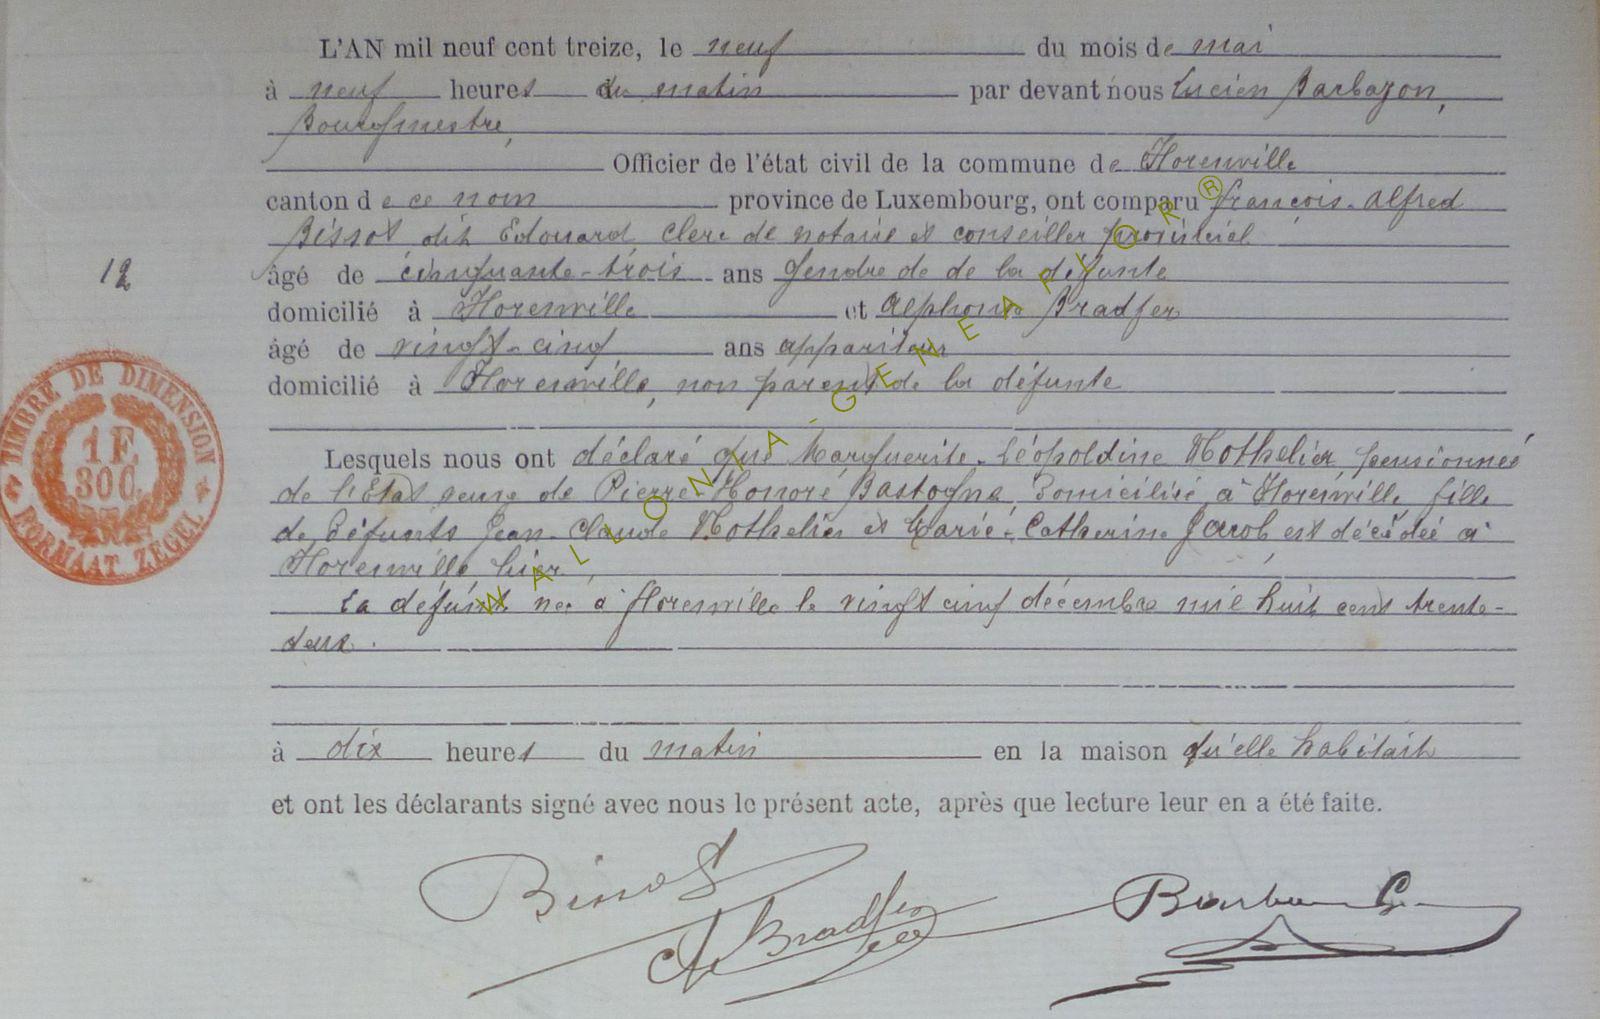 L'AN mil neuf cent treize, le neuf du mois de mai
à neuf heures du matin par devant nous Lucien Barbazon,
Bourgmestre,
Officier de l'état civil de la commune de Florenville
canton de ce nom province de Luxembourg, ont comparu François-Alfred
Bissot dit Edouard, clerc de notaire et conseiller provincial
12
âgé de cinquante-trois ans gendre de de la défunte
domicilié à Florenville et Alphonse Bradfer
âgé de vingt-cinq ans appariteur
domicilié à Florenville, non parent de la défunte
Lesquels nous ont déclaré que Marguerite-Léopoldine Nothelier pensionnée
de l'Etat veuve de Pierre-Honoré Bastogne, domiciliée à Florenville fille
de défunts Jean-Claude Nothelier et Marie-Catherine Jacob est décédée à
Florenville hier
La défunte née à Florenville le vingt cinq décembre mil huit cent trente-
deux.
à dix heures du matin en la maison qu'elle habitait
et ont les déclarants signé avec nous le présent acte, après que lecture leur en a été faite.
Bissot
A Bradfer
TIMBRE DE DIMENSION
1 F
30 C.
FORMAAT ZEGEL
WALLONIA-GENEARYOR®